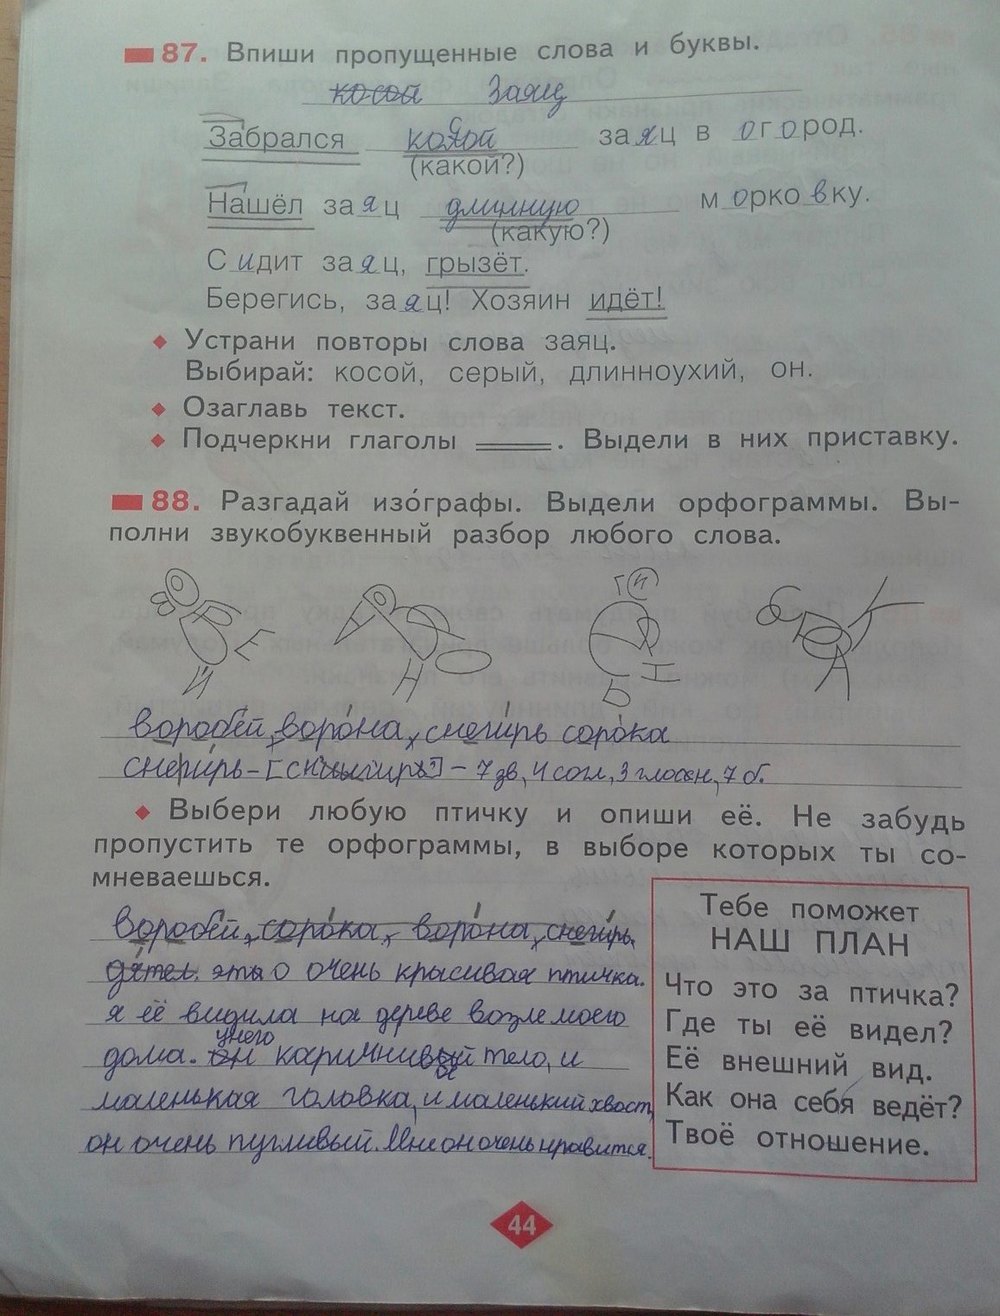 87. Впиши пропущенные слова и буквы.
косой Заяц
Забрался косой заяц в огород.
(какой?)
Нашёл заяц длинную морковку.
(какую?)
Сидит заяц, грызёт.
Берегись, заяц! Хозяин идёт!
Устрани повторы слова заяц.
Выбирай: косой, серый, длинноухий, он.
Озаглавь текст.
Подчеркни глаголы . Выдели в них приставку.
88. Разгадай изо́графы. Выдели орфограммы. Вы-
полни звукобуквенный разбор любого слова.
воробе́й, воро́на, снеги́рь соро́ка
снеги́рь – – 7 зв, 4 согл, 3 гласн, 7 б.
Выбери любую птичку и опиши её. Не забудь
пропустить те орфограммы, в выборе которых ты со-
мневаешься.
Воробе́й, соро́ка, воро́на, снеги́рь,
дя́тел. это очень красивая птичка.
я её видила на дереве возле моего
у него
дома. он каричнивый тело, и
маленькая головка, и маленький хвост,
он очень пугливый. Мне он очень нравится.
Тебе поможет
НАШ ПЛАН
Что это за птичка?
Где ты её видел?
Её внешний вид.
Как она себя ведёт?
Твоё отношение.
44